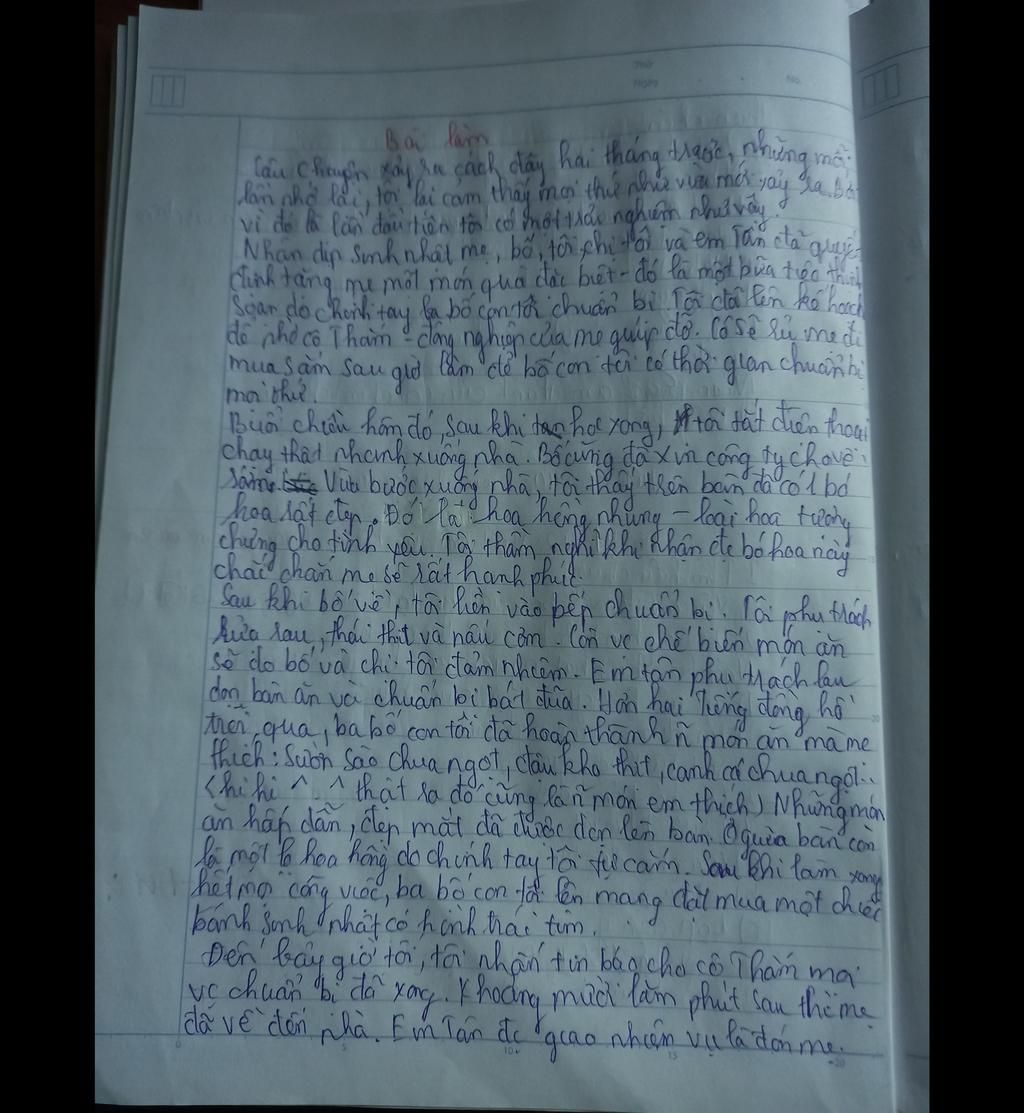 Thứ
Ngày
No.
Bài làm
Câu chuyện xảy ra cách đây hai tháng trước, nhưng mỗi
lần nhớ lại, tôi lại cảm thấy mọi thứ như vừa mới xảy ra. Bởi
vì đó là lần đầu tiên tôi có một trải nghiệm như vậy.
Nhân dịp sinh nhật mẹ, bố, tôi, chị tôi và em Tấn đã quyết
định tặng mẹ một món quà đặc biệt - đó là một bữa tiệc thịnh
soạn do chính tay ba bố con tôi chuẩn bị. Tôi đã lên kế hoạch
để nhờ cô Thắm - đồng nghiệp của mẹ giúp đỡ. Cô sẽ rủ mẹ đi
mua sắm sau giờ làm để bố con tôi có thời gian chuẩn bị
mọi thứ.
Buổi chiều hôm đó, sau khi tan học xong, tôi tắt điện thoại
chạy thật nhanh xuống nhà. Bố cũng đã xin công ty cho về
sớm. Vừa bước xuống nhà, tôi thấy trên bàn đã có 1 bó
hoa rất đẹp. Đó là hoa hồng nhung - loài hoa tượng
chưng cho tình yêu. Tôi thầm nghĩ khi nhận đc bó hoa này
chắc chắn mẹ sẽ rất hạnh phúc.
Sau khi bố về, tôi liền vào bếp chuẩn bị. Tôi phụ trách
rửa rau, thái thịt và nấu cơm. Còn vc chế biến món ăn
sẽ do bố và chị tôi đảm nhiệm. Em tấn phụ trách lau
dọn bàn ăn và chuẩn bị bát đũa. Hơn hai tiếng đồng hồ
trôi qua, ba bố con tôi đã hoàn thành ~ món ăn mà mẹ
thích: Sườn sào chua ngọt, đậu kho thịt, canh cá chua ngọt..
(hihi ^.^ thật ra đó cũng là ~ món em thích) Những món
ăn hấp dẫn, đẹp mắt đã được dọn lên bàn. Ở giữa bàn còn
là một lọ hoa hồng do chính tay tôi tự cắm. Sau khi làm xong
hết mọi công việc, ba bố con tôi lên mạng đặt mua một chiếc
bánh sinh nhật có hình trái tim.
Đến bảy giờ tối, tôi nhắn tin báo cho cô Thắm mọi
vc chuẩn bị đã xong. Khoảng mười lăm phút sau thì mẹ
đã về đến nhà. Em Tấn đc giao nhiệm vụ là đón mẹ.